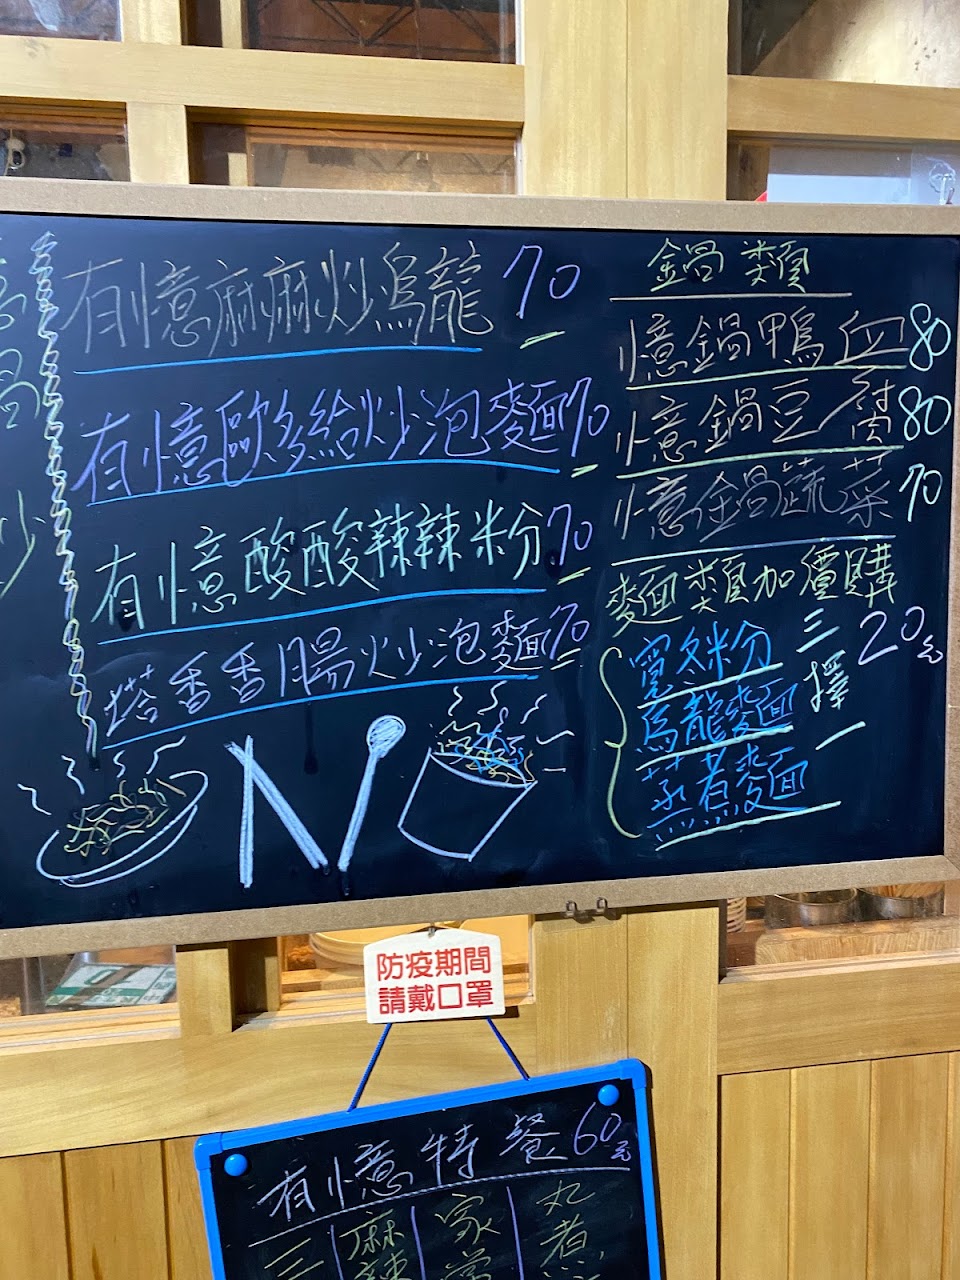 有憶麻麻炒烏龍 70
有憶歐多給炒泡麵 70
有憶酸酸辣辣粉 70
塔香香腸炒泡麵 70
鍋類
憶鍋鴨血 80
憶鍋豆腐 80
憶鍋蔬菜 70
麵類加價購
三擇一 20元
寬冬粉
烏龍麵
蒸煮麵
防疫期間
請戴口罩
有憶特餐 60元
三
麻辣
家常
丸煮